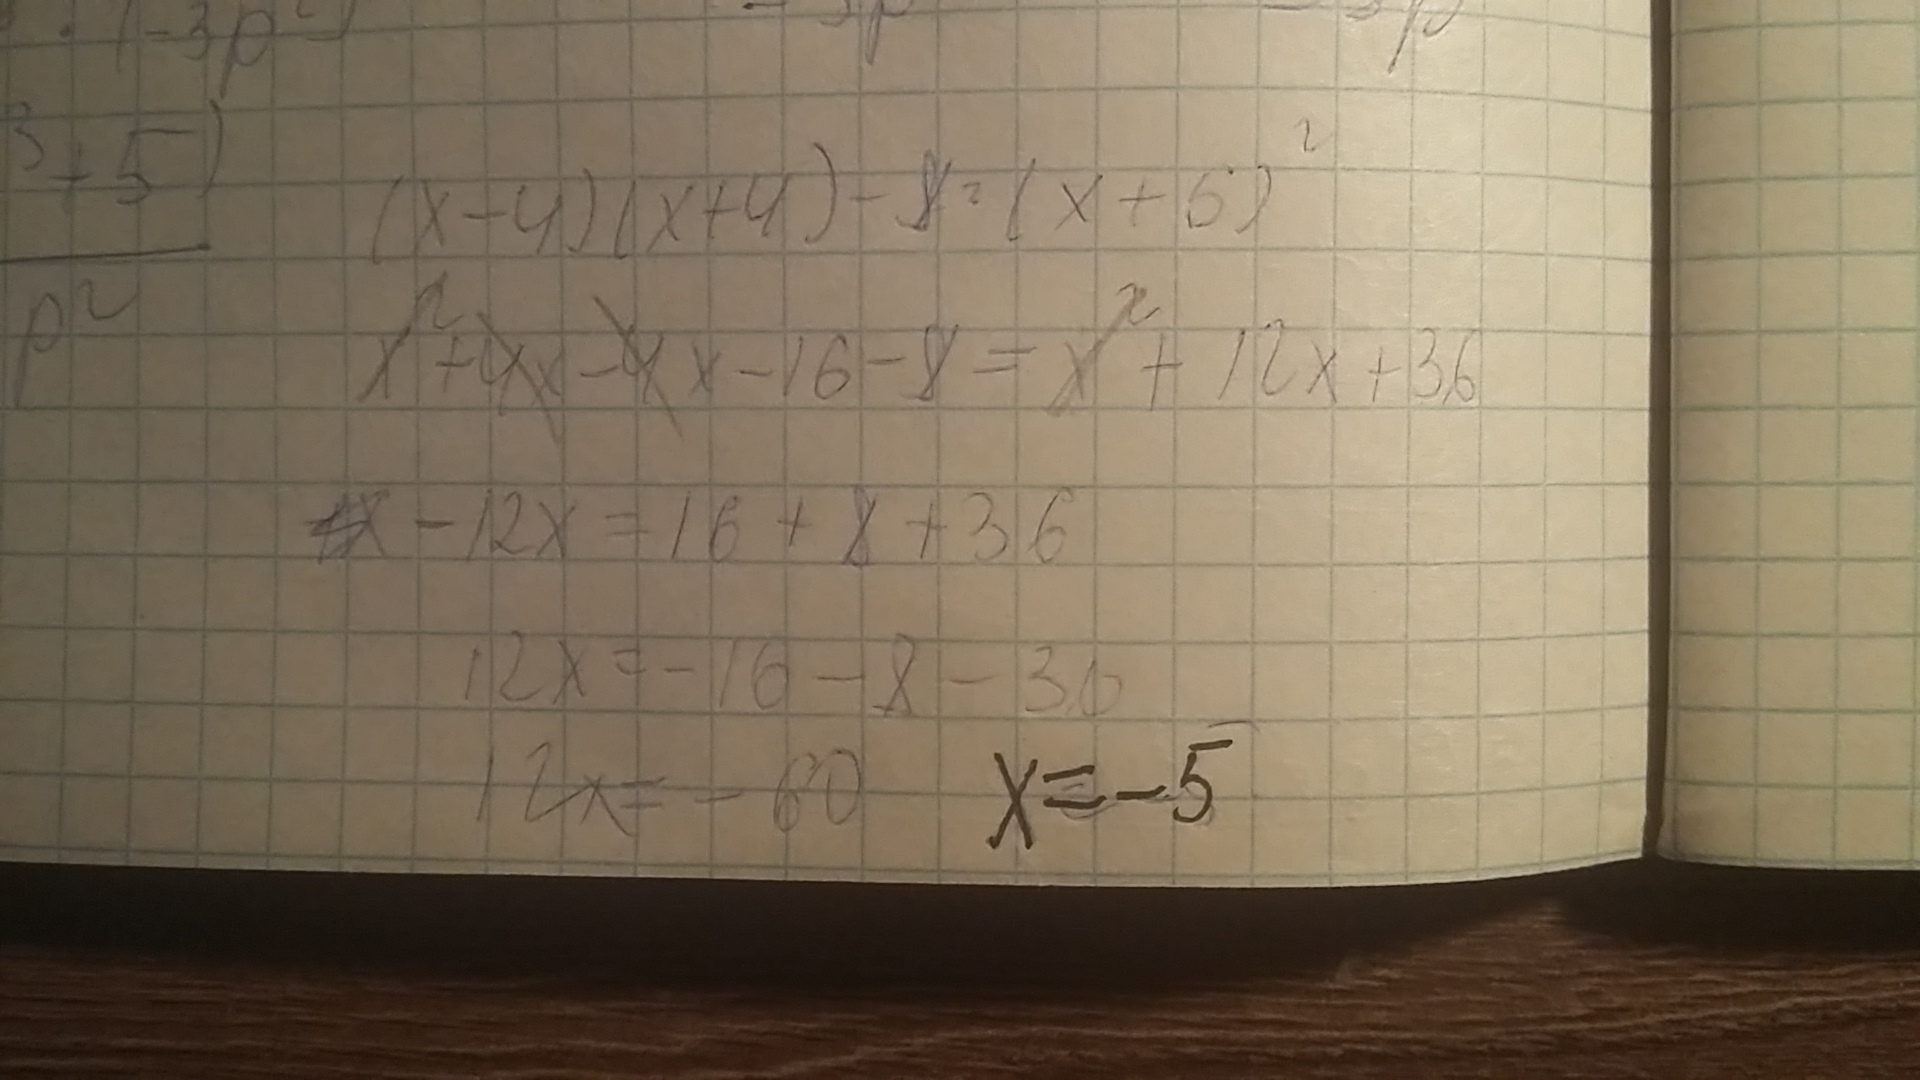 (-3p²)
-3p
-3p
3+5)
p²
(x-4)(x+4)-8=(x+6)²
x²+4x-4x-16-8=x²+12x+36
-12x=16+8+36
12x=-16-8-36
12x=-60 x=-5